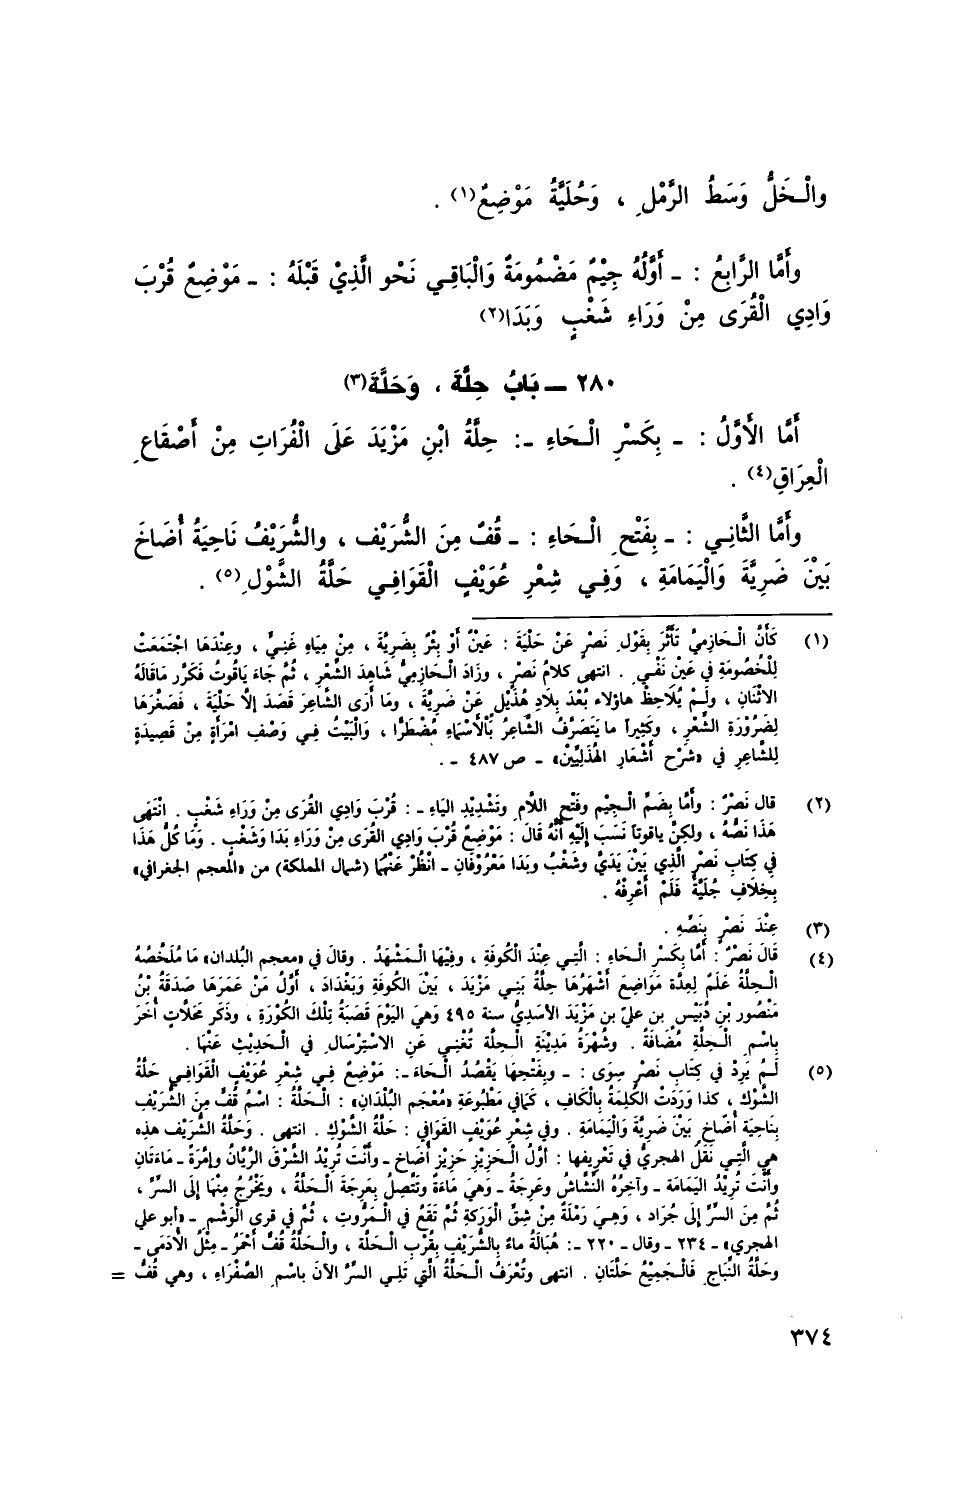 والْـخَلُّ وَسَطُ الرَّمْلِ ، وَحُلَيَّةُ مَوْضِعٌ(١) .
وأَمَّا الرَّابعُ : ـ أَوَّلُهُ جِيْمٌ مَضْمُومَةٌ وَالْبَاقِـي نَحْو الَّذِيْ قَبْلَهُ : ـ مَوْضِعٌ قُرْبَ
وَادِي الْقُرَى مِنْ وَرَاءِ شَغْبٍ وَبَدَا(٢)
٢٨٠ ــ بَابُ حِلَّةَ ، وَحَلَّةَ(٣)
أَمَّا الأَوَّلُ : ـ بِكَسْرِ الْـحَاءِ ـ: حِلَّةُ ابْنِ مَزْيَدَ عَلَى الْفُرَاتِ مِنْ أَصْقَاعِ
الْعِرَاقِ(٤) .
وأَمَّا الثَّانِـي : ـ بِفَتْحِ الْـحَاءِ : ـ قُفٌ مِنَ الشُّرَيْف ، والشُّرَيْفُ نَاحِيَةُ أُضَاخَ
بَيْنَ ضَرِيَّةَ وَالْيَمَامَةِ ، وَفِـي شِعْرِ عُوَيْفِ الْقَوَافِـي حَلَّةُ الشَّوْلِ(٥) .
(١) كَأَنَّ الْـحَازِمِيَّ تَأَثَّرَ بِقَوْلِ نَصْرٍ عَنْ حَلْيَةَ : عَيْنٌ أَوْ بِئْرٌ بِضَرِيَّةَ ، مِنْ مِيَاهِ غَنِـيٍّ ، وعِنْدَهَا اجْتَمَعَتْ
لِلْخُصُومَةِ فِي عَيْنِ نَفْـيٍ . انتهى كلامُ نَصْرٍ ، وزَادَ الْـحَازِمِيُّ شَاهِدَ الشِّعْرِ ، ثُمَّ جَاءَ يَاقُوتُ فَكَرَّرَ مَاقَالَهُ
الاثْنَانِ ، ولَـمْ يُلَاحِظْ هاؤلاء بُعْدَ بِلَادِ هُذَيْلٍ عَنْ ضَرِيَّةَ ، ومَا أَرَى الشَّاعِرَ قَصَدَ إلَّا حَلْيَةَ ، فَصَغَّرَهَا
لِضَرُوْرَةِ الشِّعْرِ ، وكَثِيراً ما يَتَصَرَّفُ الشَّاعِرُ بُالأَسْمَاءِ مُضْطَرًّا ، وَالْبَيْتُ فِـي وَصْفِ امْرَأَةٍ مِنْ قَصِيدَةٍ
لِلشَّاعِرِ فِي «شَرْحِ أَشْعَارِ الهُذَلِيِّيْنَ» ـ ص ٤٨٧ ـ .
(٢) قال نَصْرٌ : وأَمَّا بِضَمِّ الْـجِيْمِ وفَتْحِ اللَّامِ وتَشْدِيْدِ اليَاءِ ـ : قُرْبَ وَادِي القُرَى مِنْ وَرَاءِ شَغْبٍ . انْتَهَى
هَذَا نَصُّهُ ، ولكِنَّ ياقوتاً نَسَبَ إلَيْهِ أَنَّهُ قَالَ : مَوْضِعٌ قُرْبَ وَادِي القُرَى مِنْ وَرَاءِ بَدَا وَشَغْبٍ . وَمَا كُلُّ هَذَا
فِي كِتَابِ نَصْرٍ الَّذِي بَيْنَ يَدَيَّ وشَغْبٌ وبَدَا مَعْرُوْفَانِ ـ انْظُرْ عَنْهُمَا (شمال المملكة) من «المعجم الجغرافي»
بِخِلَافِ جُلَيَّةَ فَلَمْ أَعْرِفْهُ .
(٣) عِنْدَ نَصْرٍ بِنَصِّهِ .
(٤) قَالَ نَصْرٌ : أَمَّا بِكَسْرِ الْـحَاءِ : الَّتِـي عِنْدَ الْكُوفَةِ ، وفِيْهَا الْـمَشْهَدُ . وقالَ فِي «معجم البُلدان» مَا مُلَخَّصُهُ
الْـحِلَّةُ عَلَمٌ لِعِدَّةِ مَوَاضِعَ أَشْهَرُهَا حِلَّةُ بَنِـي مَزْيَدَ ، بَيْنَ الكُوفَةِ وَبَغْدَادَ ، أَوَّلُ مَنْ عَمَرَهَا صَدَقَةُ بْنُ
مَنْصُورِ بْنِ دُبَيْسِ بن عليِّ بن مَزْيَدَ الأَسَدِيُّ سنة ٤٩٥ وَهِيَ اليَوْمَ قَصَبَةُ تِلْكَ الكُوْرَةِ ، وذَكَر مَحَلَّاتٍ أُخَرَ
بِاسْمِ الْـحِلَّةِ مُضَافَةً . وشُهْرَةُ مَدِيْنَةِ الْـحِلَّة تُغْنِـي عَنِ الاسْتِرْسَالِ فِي الْـحَدِيْثِ عَنْهَا .
(٥) لَـمْ يَرِدْ فِي كِتَابِ نَصْرٍ سِوَى : ـ وبِفَتْحِهَا يَقْصُدُ الْـحَاءَ ـ: مَوْضِعٌ فِـي شِعْرِ عُوَيْفِ الْقَوَافِـي حَلَّةُ
الشَّوْك ، كذا وَرَدَتْ الْكَلِمَةُ بِالْكَافِ ، كَمَافِي مَطْبُوعَةِ «مُعْجَمِ البُلْدَانِ» : الْـحَلَّةُ : اسْمُ قُفٍّ مِنَ الشُّرَيْفِ
بِنَاحِيَةِ أُضَاخِ بَيْنَ ضَرِيَّةَ وَالْيَمَامَةِ . وفي شِعْرِ عُوَيْفِ القَوَافِي : حَلَّةُ الشَّوْكِ . انتهى . وَحَلَّةُ الشُّرَيْف هذِه
هي الَّتِـي نَقَلَ الهجريُّ فِي تَعْرِيفِها : أَوَّلُ الْـحَزِيْزِ حَزِيْزِ أُضَاخِ ـ وأَنْتَ تُرِيْدُ الشَّرْقَ الرَّيَّانُ وإمَّرَةُ ـ مَاءَتَانِ
وأَنْتَ تُرِيْدُ اليَمَامَةَ ـ وآخِرُهُ النَّشَّاشُ وعَرِجَةُ ـ وَهيَ مَاءَةٌ وَتَتَّصِلُ بِعَرِجَةَ الْـحَلَّةُ ، ويَخْرُجُ مِنْهَا إلَى السِّرِّ ،
ثُمَّ مِنَ السِّرِّ إلَى جُرَاد ، وَهِـيَ رَمْلَةٌ مِنْ شِقِّ الْوَرِكَةِ ثُمَّ تَقَعُ فِي الْـمَرُّوتِ ، ثُمَّ فِي قرى الْوَشْمِ ـ «أبو علي
الهجري» ـ ٢٣٤ ـ وقال ـ ٢٢٠ ـ: هُبَالَةُ ماءٌ بِالشُّرَيْفِ بِقُرْبِ الْـحَلَّةِ ، والْـحَلَّةُ قُفٌّ أَحْمَرُ ـ مِثْلُ الأُدَمَى ـ
وحَلَّةُ النِّبَاجِ فَالْـجَمِيْعُ حَلَّتَانِ . انتهى وتُعْرَفُ الْـحَلَّةُ الَّتِي تَلِـي السِّرَّ الآنَ بِاسْمِ الصَّفْرَاءِ ، وهي قُفٌّ =
٣٧٤